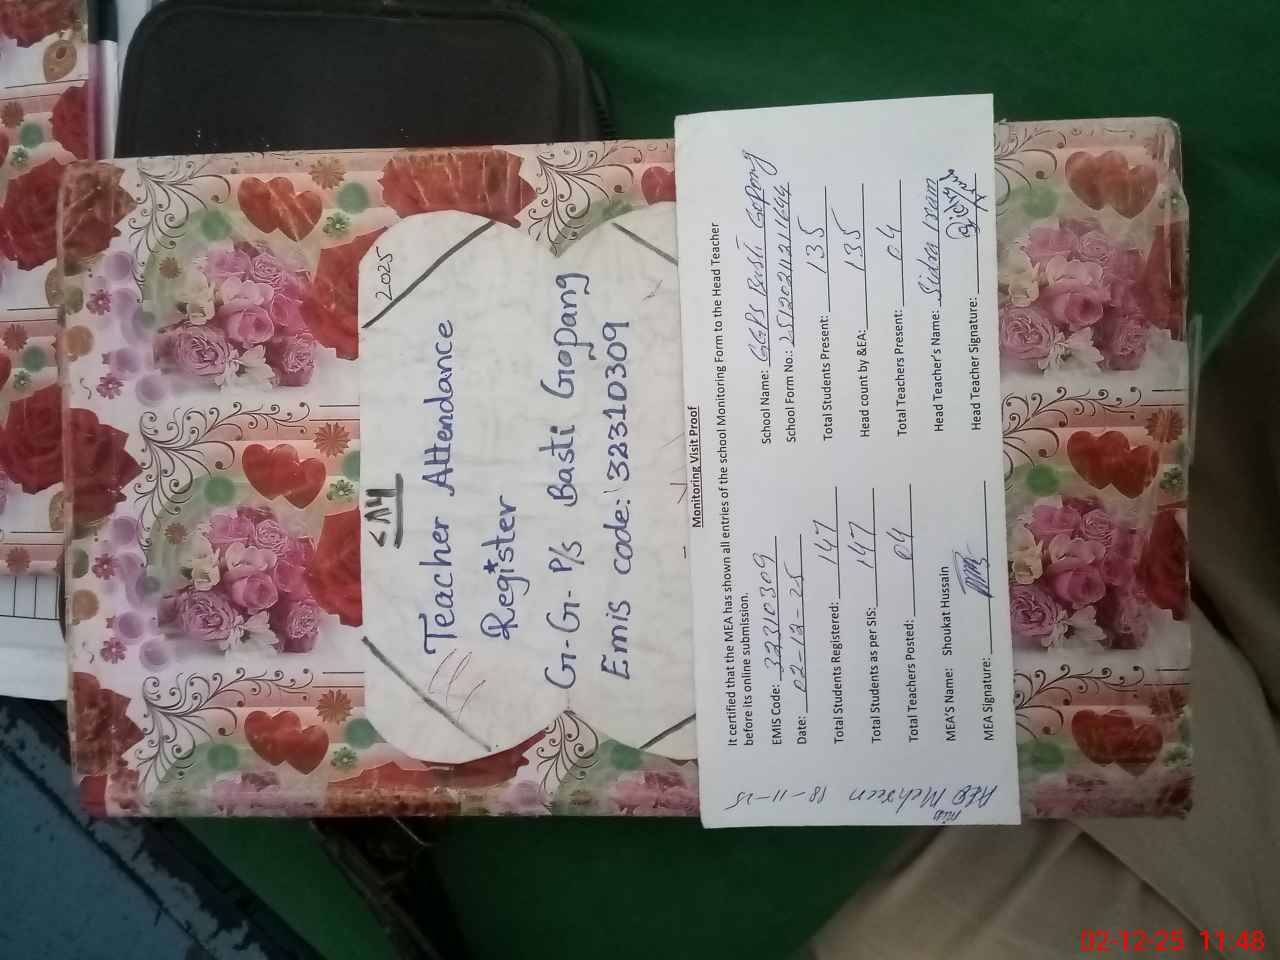 2025
<M
Teacher Attendance
Register
G-G- P/s Basti Gopang
Emis code: 32310309
Monitoring Visit Proof
It certified that the MEA has shown all entries of the school Monitoring Form to the Head Teacher
before its online submission.
EMIS Code: 32310309 School Name: GGPS Basti Gopang
Date: 02-12-25 School Form No.:
Total Students Registered: 147 Total Students Present: 135
Total Students as per SIS: 147 Head count by &EA: 135
Total Teachers Posted: 04 Total Teachers Present: 04
MEA'S Name: Shoukat Hussain Head Teacher's Name: Sidra
MEA Signature: Head Teacher Signature:
AEO Mehreen 18-11-25
02-12-25 11:48